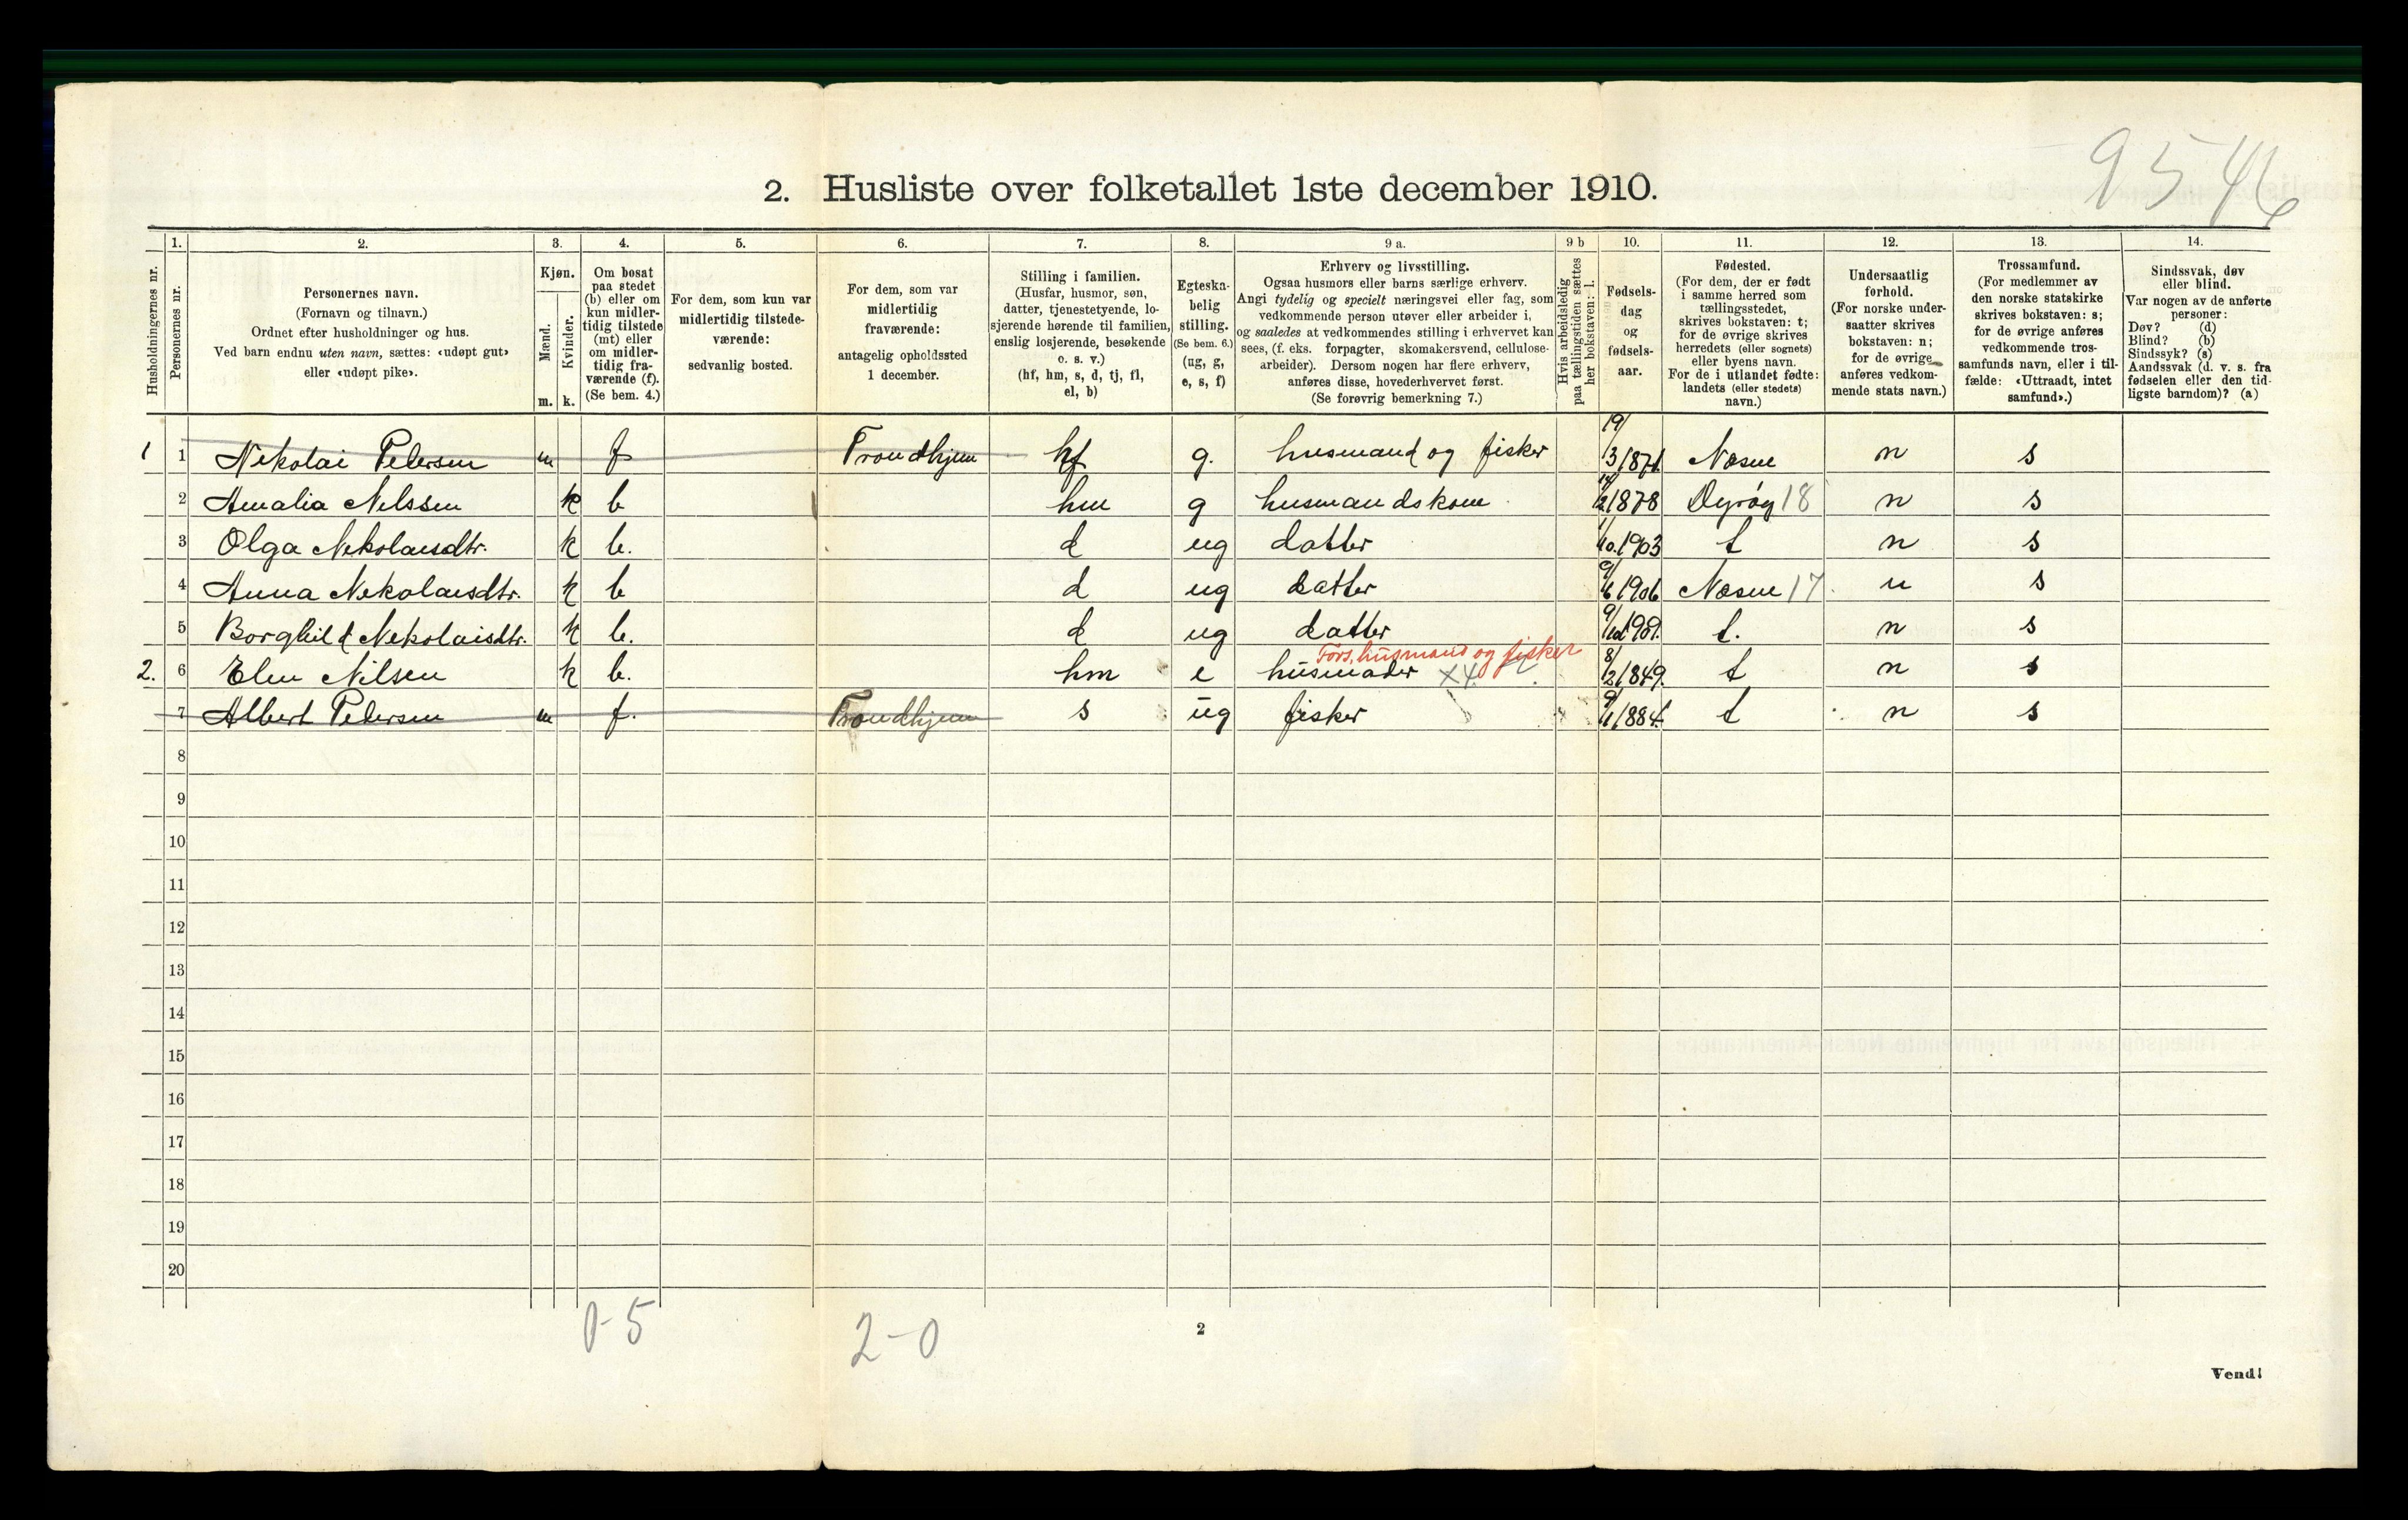 9546
2. Husliste over folketallet 1ste december 1910.
Husholdningernes nr.
1.
Personernes nr.
2.
Personernes navn.
(Fornavn og tilnavn.)
Ordnet efter husholdninger og hus.
Ved barn endnu uten navn, sættes: «udøpt gut»
eller «udøpt pike».
3.
Kjøn.
Mænd.
Kvinder.
m. k.
4.
Om bosat
paa stedet
(b) eller om
kun midler-
tidig tilstede
(mt) eller
om midler-
tidig fra-
værende (f).
(Se bem. 4.)
5.
For dem, som kun var
midlertidig tilstede-
værende:
sedvanlig bosted.
6.
For dem, som var
midlertidig
fraværende:
antagelig opholdssted
1 december.
7.
Stilling i familien.
(Husfar, husmor, søn,
datter, tjenestetyende, lo-
sjerende hørende til familien,
enslig losjerende, besøkende
o. s. v.)
(hf, hm, s, d, tj, fl,
el, b)
8.
Egteska-
belig
stilling.
(Se bem. 6.)
(ug, g,
e, s, f)
9 a.
Erhverv og livsstilling.
Ogsaa husmors eller barns særlige erhverv.
Angi tydelig og specielt næringsvei eller fag, som
vedkommende person utøver eller arbeider i,
og saaledes at vedkommendes stilling i erhvervet kan
sees, (f. eks. forpagter, skomakersvend, cellulose-
arbeider). Dersom nogen har flere erhverv,
anføres disse, hovederhvervet først.
(Se forøvrig bemerkning 7.)
9 b
Hvis arbeidsledig
paa tællingstiden sættes
her bokstaven: l.
10.
Fødsels-
dag
og
fødsels-
aar.
11.
Fødested.
(For dem, der er født
i samme herred som
tællingsstedet,
skrives bokstaven: t;
for de øvrige skrives
herredets (eller sognets)
eller byens navn.
For de i utlandet fødte:
landets (eller stedets)
navn.)
12.
Undersaatlig
forhold.
(For norske under-
saatter skrives
bokstaven: n;
for de øvrige
anføres vedkom-
mende stats navn.)
13.
Trossamfund.
(For medlemmer av
den norske statskirke
skrives bokstaven: s;
for de øvrige anføres
vedkommende tros-
samfunds navn, eller i til-
fælde: «Uttraadt, intet
samfund».)
14.
Sindssvak, døv
eller blind.
Var nogen av de anførte
personer:
Døv? (d)
Blind? (b)
Sindssyk? (s)
Aandssvak (d. v. s. fra
fødselen eller den tid-
ligste barndom)? (a)
1 1 Nikolai Petersen m f Trondhjem hf g. husmand og fisker 19/3 1871 Næsne n s
2 Amalia Nilssen k b hm g husmandskone 1878 Dyrøy 18 n s
3 Olga Nikolaisdtr. k b. d ug datter 1/10.1903 t n s
4 Anna Nikolaisdtr. k b d ug datter 9/6 1906 Næsne 17 n s
5 Borghild Nikolaisdtr. k b. d ug datter t. n s
Fors. husmand og fisker
2. 6 Elen Nilsen k b. hm e husmoder X4 8/2 1849. t n s
7 Albert Petersen m f. Trondhjem s ug fisker 9/1 1884 t n s
8
9
10
11
12
13
14
15
16
17
18
19
20
0-5
2-0
2
Vend!